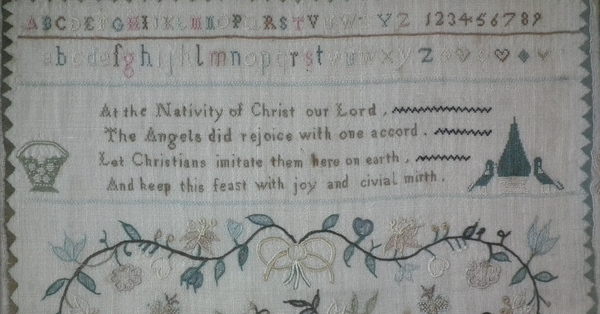 ABCDEFGHIJKLMNOPQRSTVUWXYZ 123456789
abcdefghijklmnopqrstvuwxyz
At the Nativity of Christ our Lord,
The Angels did rejoice with one accord.
Let Christians imitate them here on earth,
And keep this feast with joy and civial mirth.